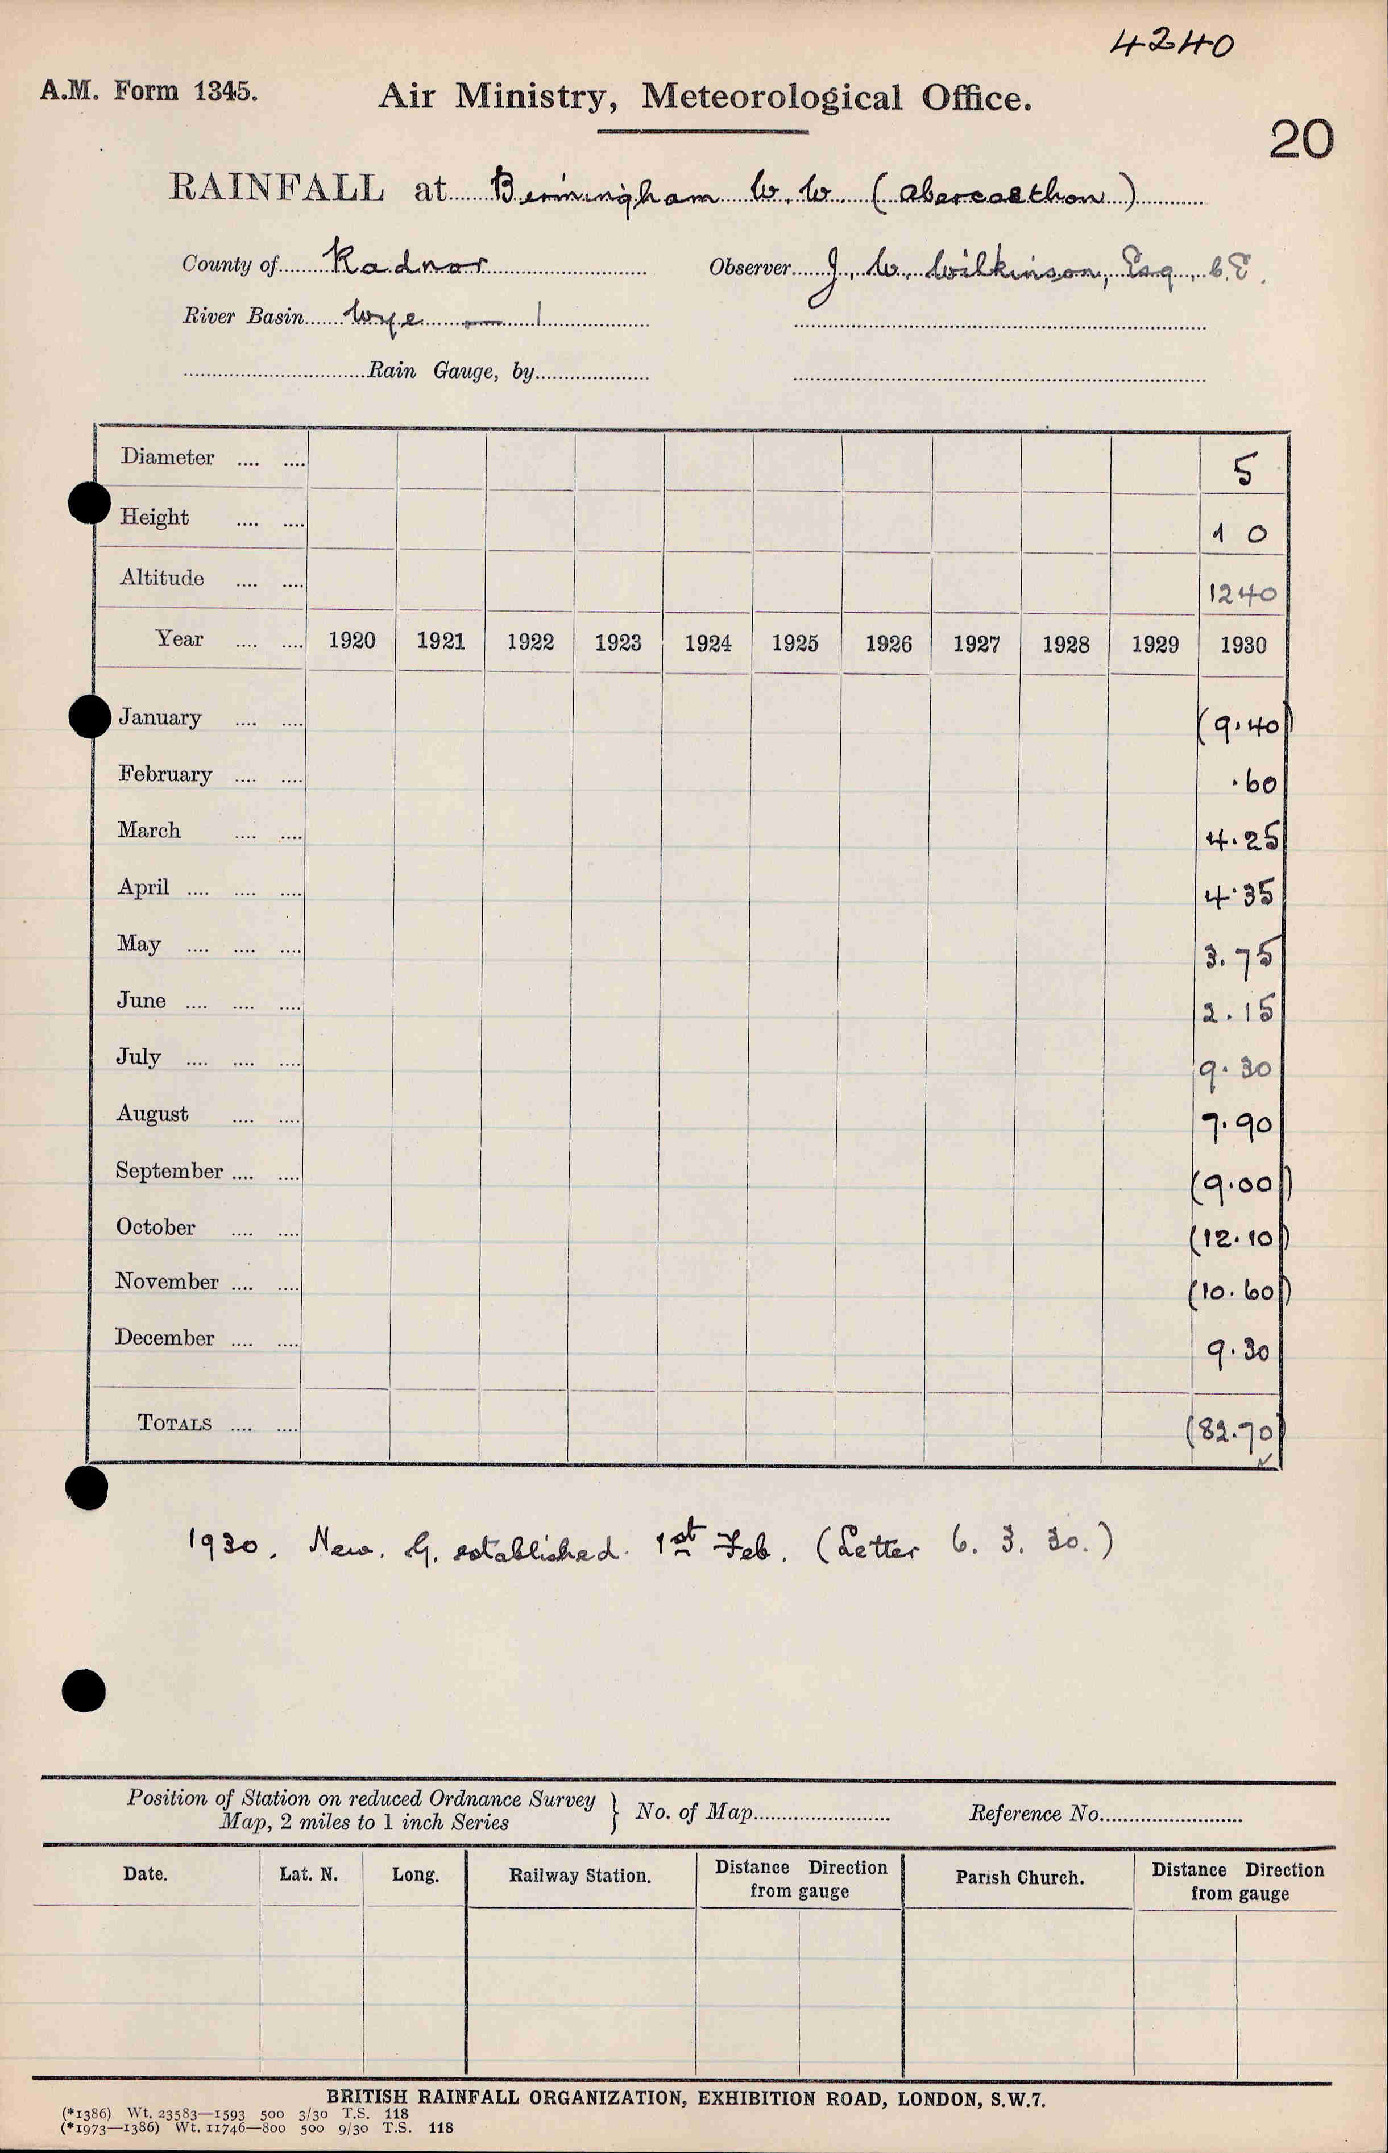 4240
A.M. Form 1345.
Air Ministry, Meteorological Office.
20
RAINFALL at Birmingham W. W. (Abercaethon)
County of Radnor Observer J. W. Wilkinson, Esq., C.E.
River Basin Wye — 1
Rain Gauge, by
Diameter .... .... 5
Height .... .... 1 0
Altitude .... .... 1240
Year .... .... 1920 1921 1922 1923 1924 1925 1926 1927 1928 1929 1930
January .... .... (9.40)
February .... .... .60
March .... .... 4.25
April .... .... .... 4.35
May .... .... .... 3.75
June .... .... .... 2.15
July .... .... .... 9.30
August .... .... 7.90
September .... .... (9.00)
October .... .... (12.10)
November .... .... (10.60)
December .... .... 9.30
TOTALS .... .... (82.70)
1930. New. G. established. 1st Feb. (Letter 6. 3. 30.)
Position of Station on reduced Ordnance Survey
Map, 2 miles to 1 inch Series } No. of Map Reference No.
Date. Lat. N. Long. Railway Station. Distance Direction
from gauge Parish Church. Distance Direction
from gauge
BRITISH RAINFALL ORGANIZATION, EXHIBITION ROAD, LONDON, S.W.7.
(*1386) Wt. 23583—1593 500 3/30 T.S. 118
(*1973—1386) Wt. 11746—800 500 9/30 T.S. 118